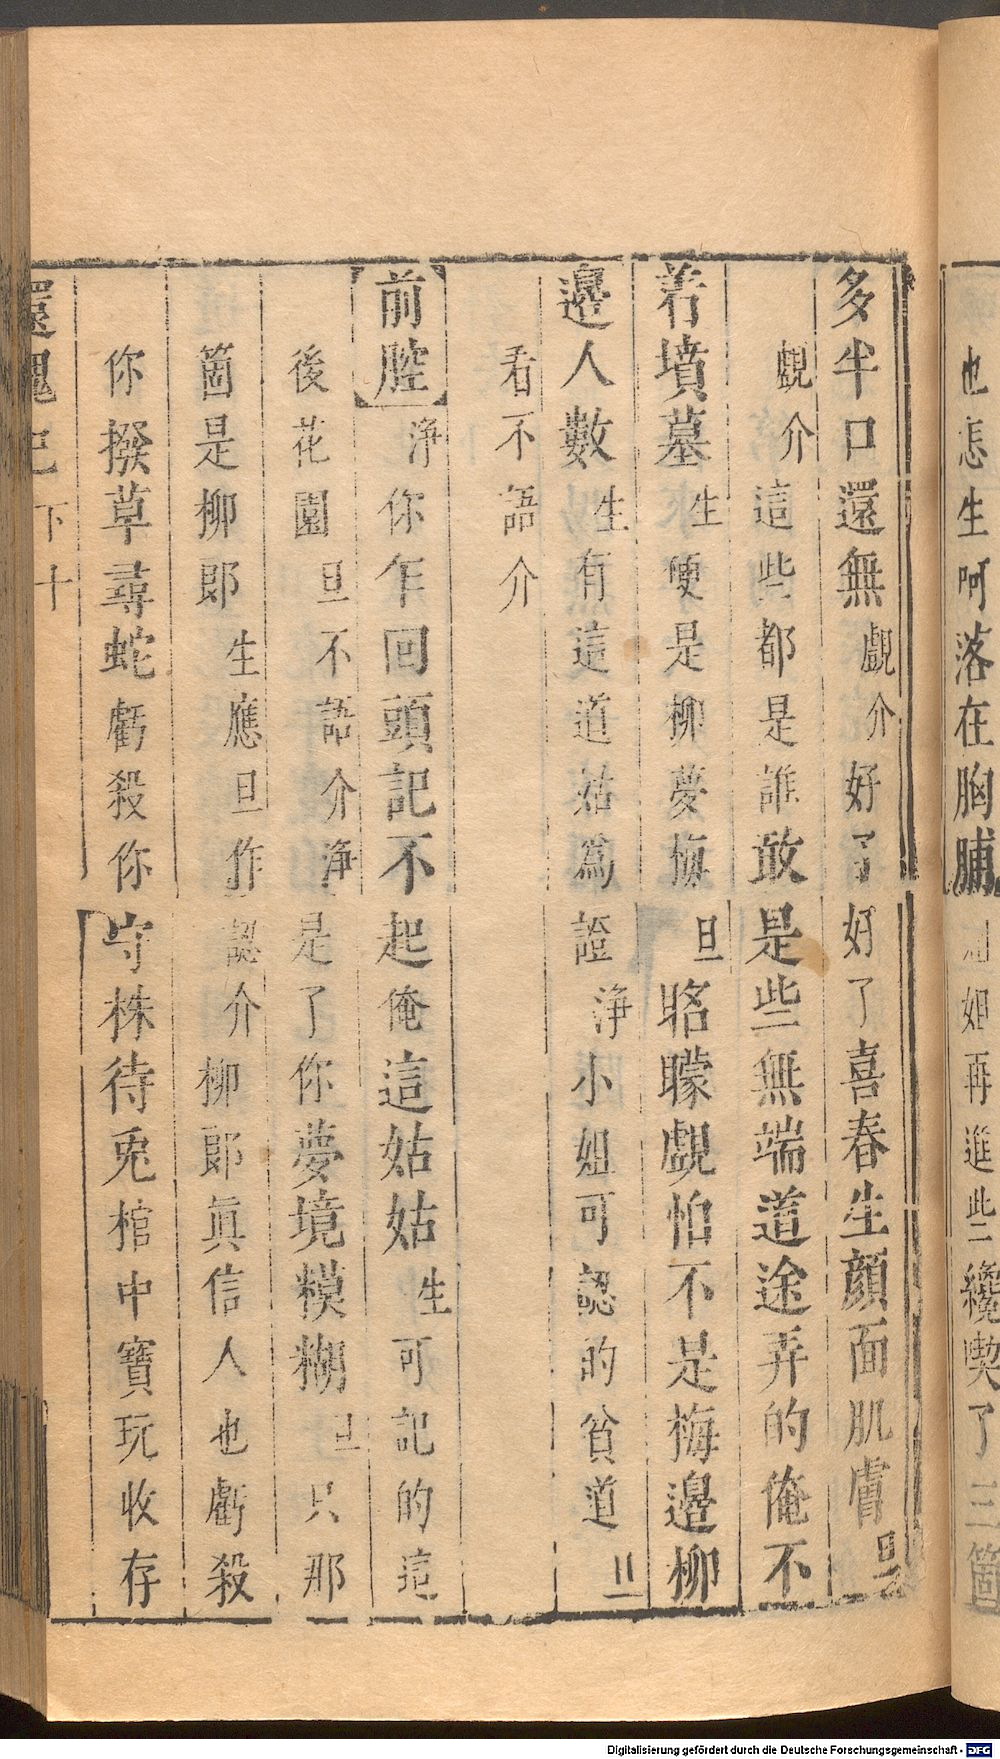 也怎生呵落在胸脯姐再進些纔喫了三箇
多半口還無覷介好了好了喜春生顏面肌膚旦
覷介這些都是誰敢是些無端道途弄的俺不
若墳墓生便是柳夢梅旦眳矇覷怕不是梅邊柳
邊人數生有這道姑爲證淨小姐可認的貧道
看不語介
前腔淨你乍回頭記不起俺這姑姑生可記的這
後花園旦不語介淨是了你夢境糢糊旦只那
箇是柳郎生應旦作認介柳郎真信人也虧殺
你撥草尋蛇虧殺你守株待兎棺中寶玩收存
還魂記下十
Digitalisierung gefördert durch die Deutsche Forschungsgemeinschaft - DFG